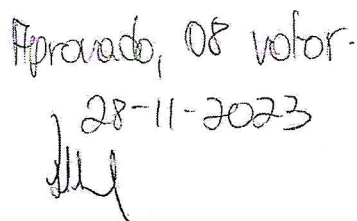 Aprovado, 08 votos.
28-11-2023